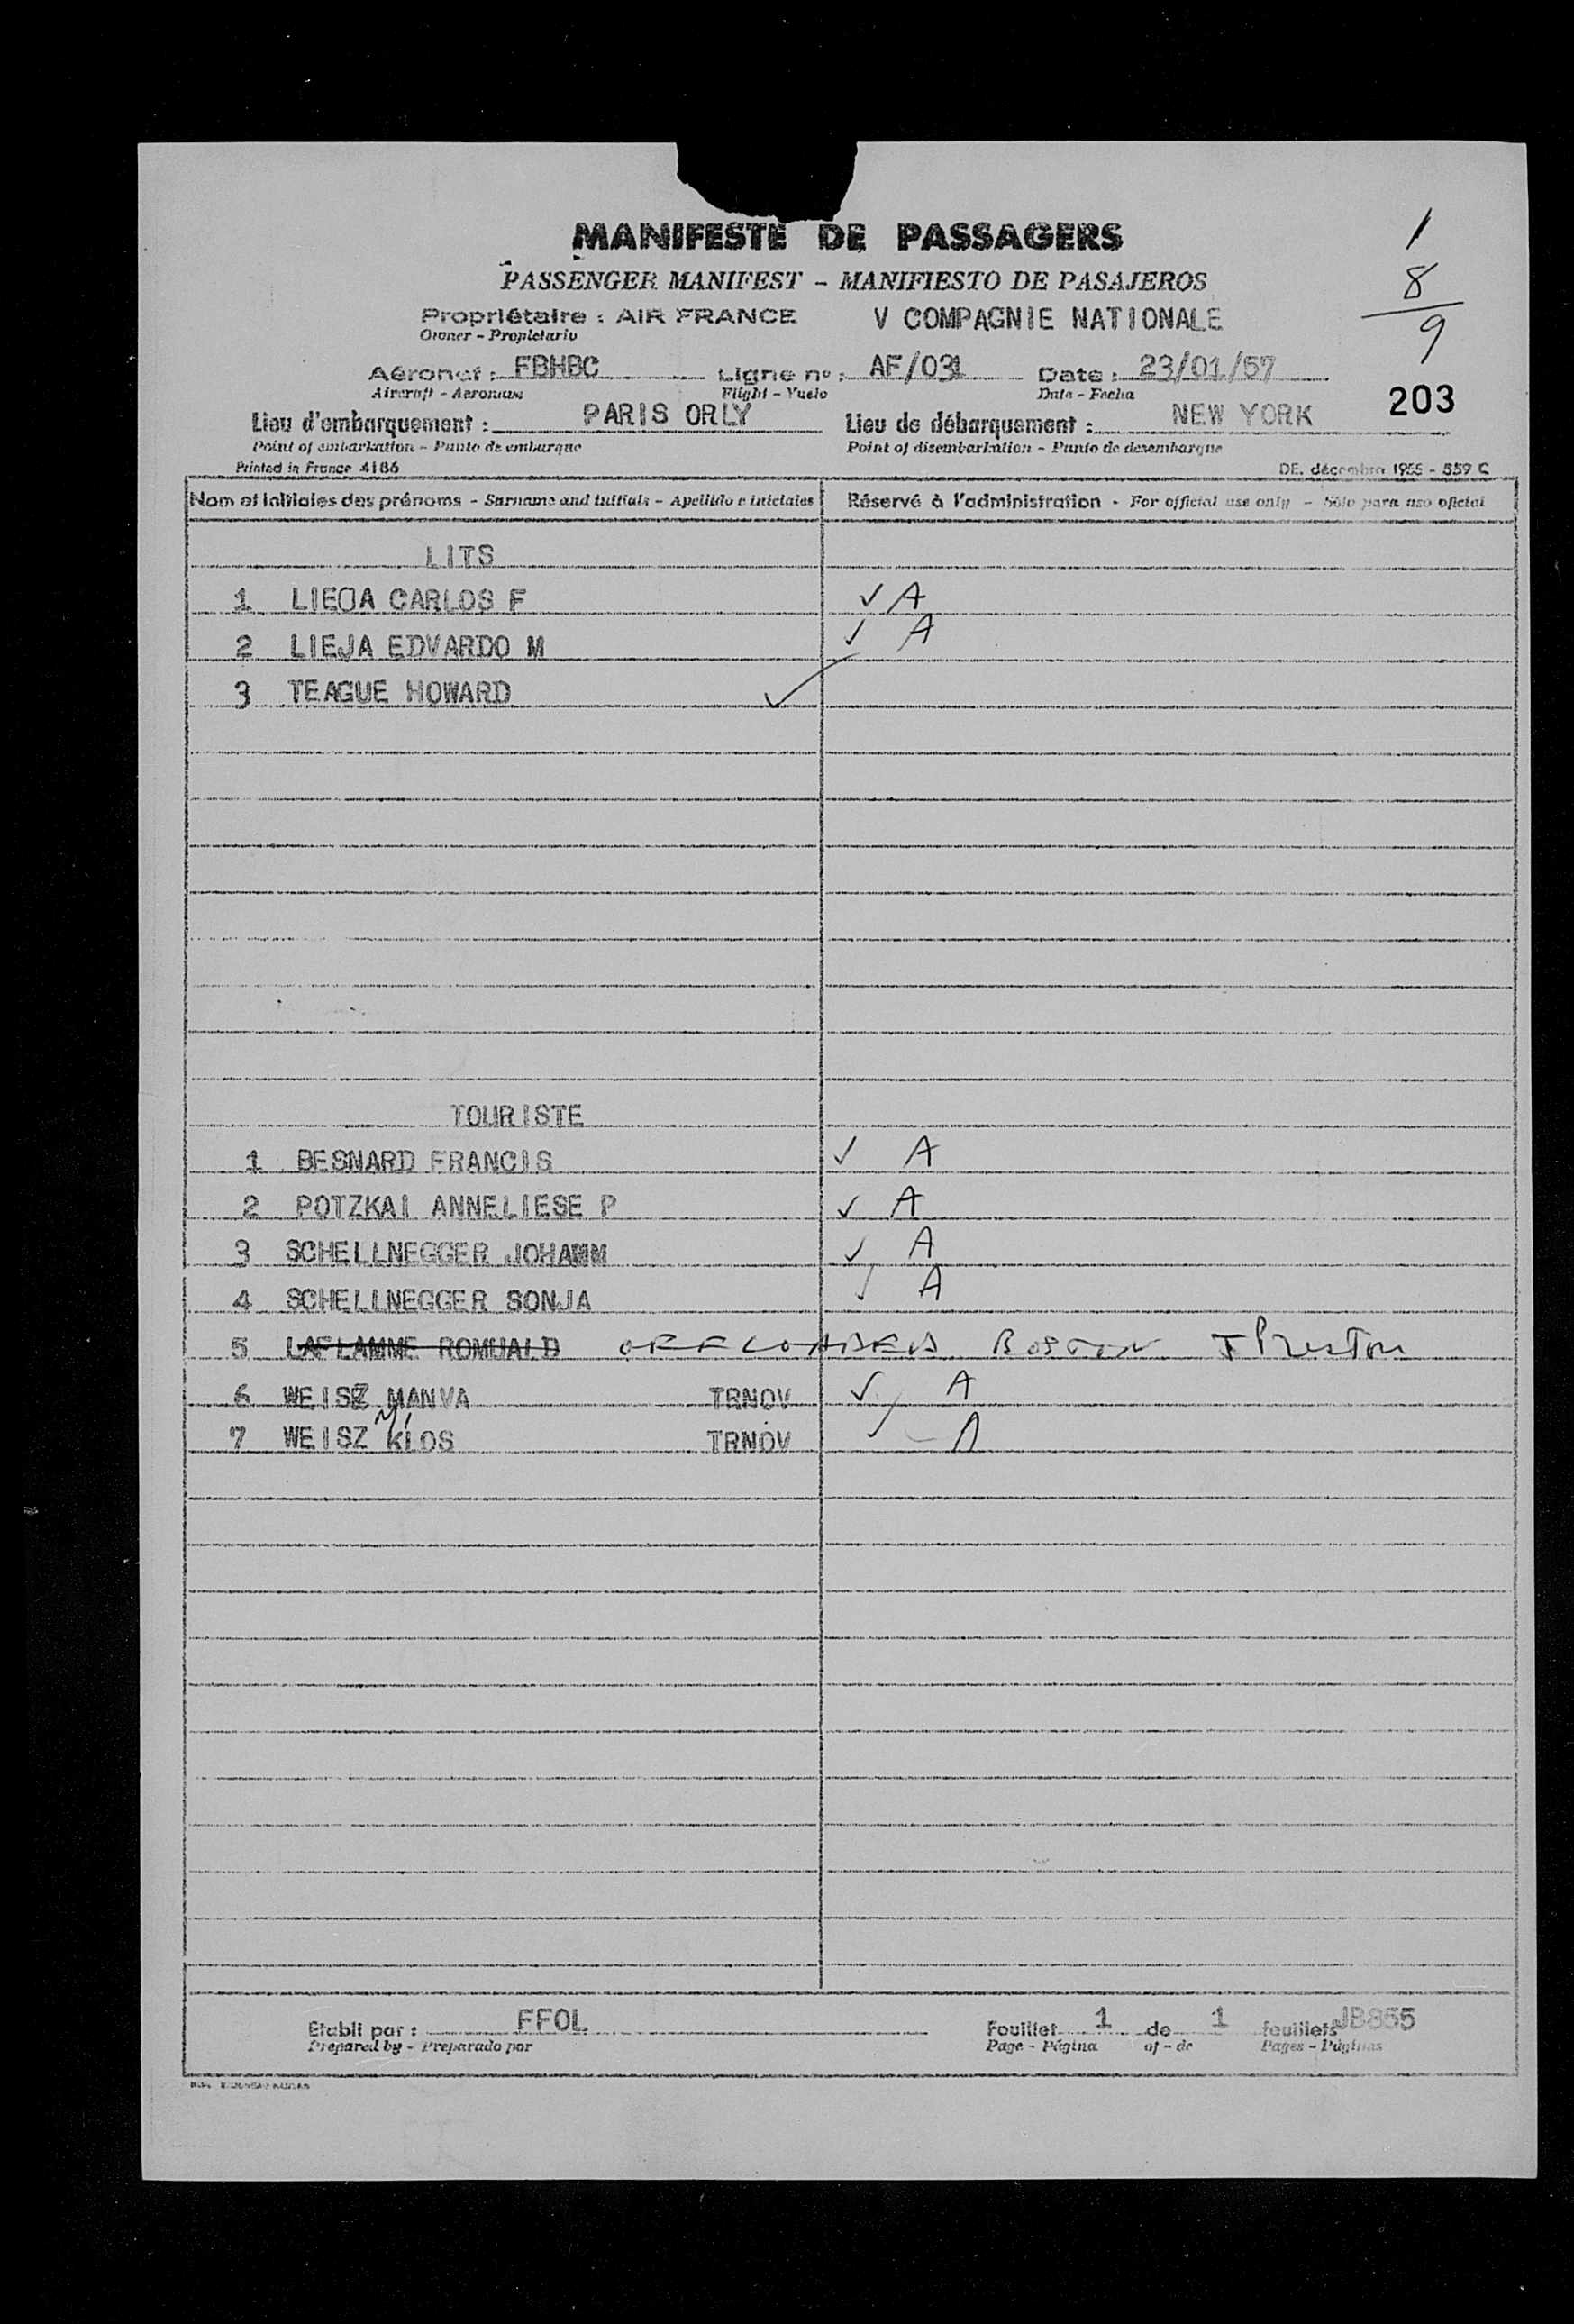 MANIFESTE DE PASSAGERS
1
PASSENGER MANIFEST - MANIFIESTO DE PASAJEROS
8
Propriétaire : AIR FRANCE V COMPAGNIE NATIONALE
9
Owner - Propietario
Aéronef : FBHBC Ligne nº : AF/031 Date : 23/01/57
Aircraft - Aeronave Flight - Vuelo Date - Fecha
203
Lieu d'embarquement : PARIS ORLY Lieu de débarquement : NEW YORK
Point of embarkation - Punto de embarque Point of disembarkation - Punto de desembarque
Printed in France 4186 DE. décembre 1955 - 559 C
Nom et initiales des prénoms - Surname and initials - Apellido e iniciales Réservé à l'administration - For official use only - Sólo para uso oficial
LITS
1 LIEOA CARLOS F ✓ A
2 LIEJA EDVARDO M ✓ A
3 TEAGUE HOWARD ✓
TOURISTE
1 BESNARD FRANCIS ✓ A
2 POTZKAI ANNELIESE P ✓ A
3 SCHELLNEGGER JOHAMM ✓ A
4 SCHELLNEGGER SONJA ✓ A
5 LAFLAMME ROMUALD BOSTON
6 WEISZ MANVA TRNOV ✓ A
7 WEISZ KLOS TRNOV ✓ A
Etabli par : FFOL Feuillet 1 de 1 feuillets JB855
Prepared by - Preparado por Page - Página of - de Pages - Páginas